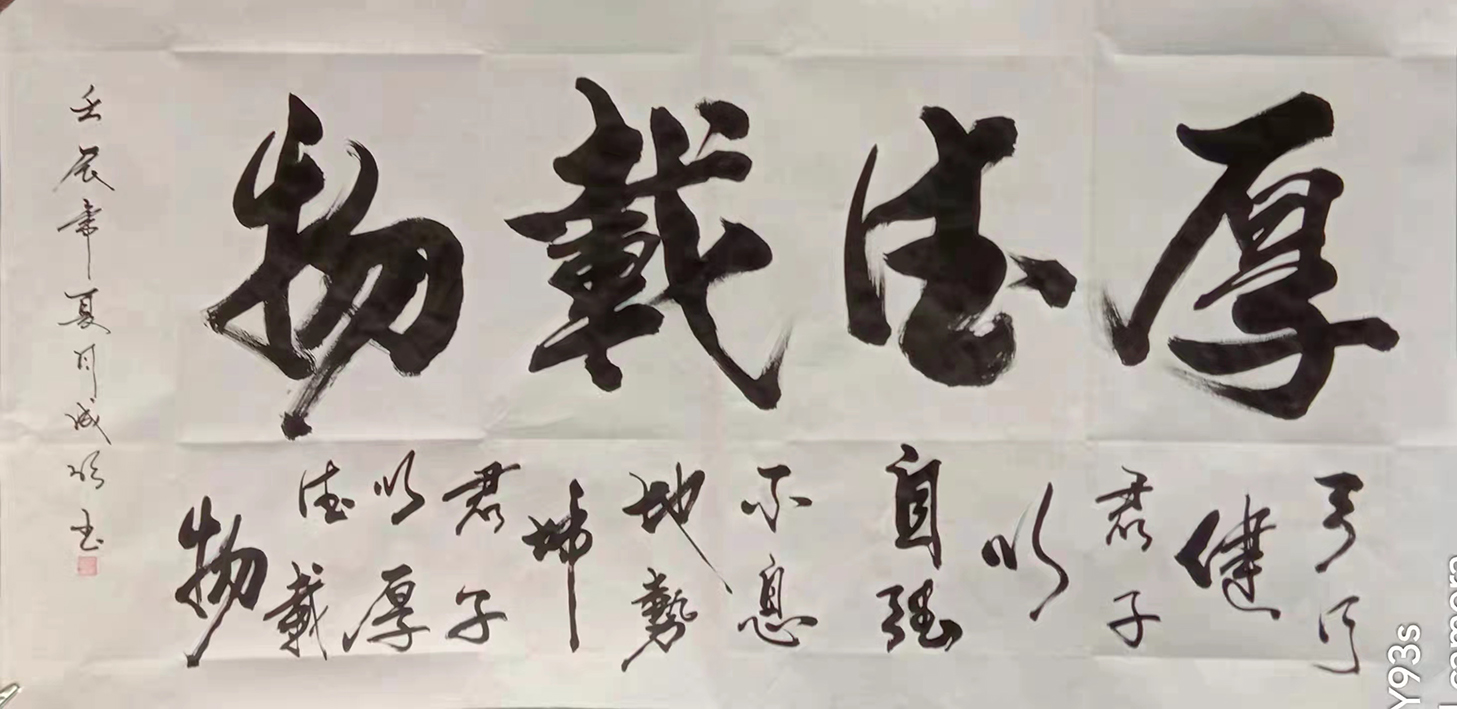 厚德载物
天行
健
君子
以
自强
不息
地势
坤
君子
以厚
德载
物
壬辰年夏月成
书
Y93s